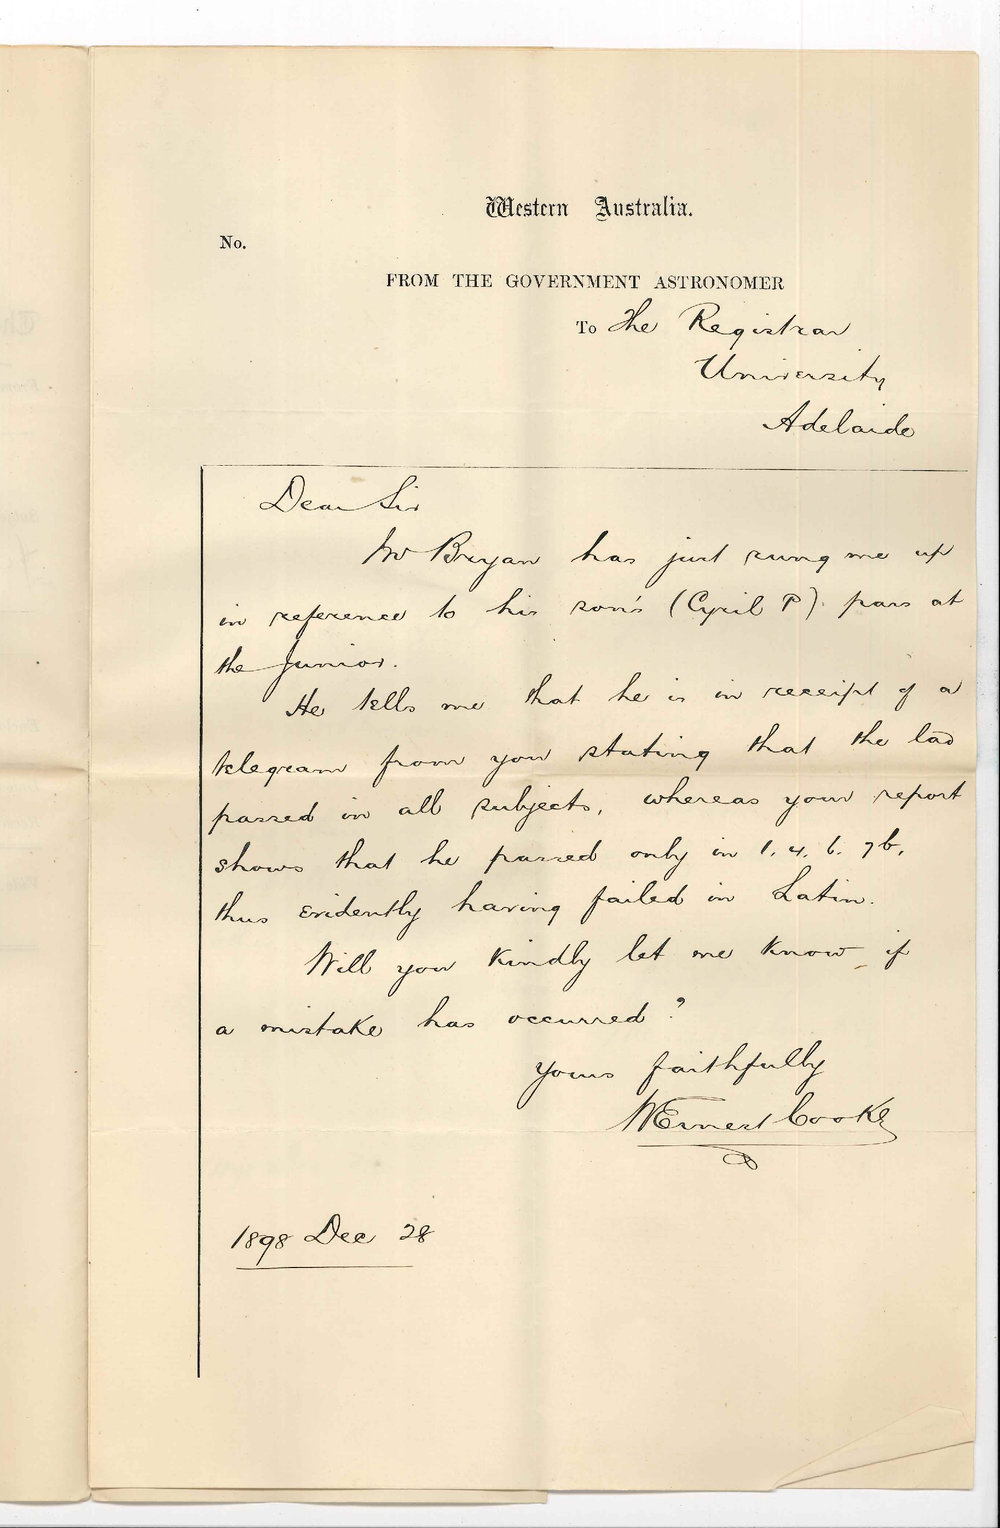 Western Australia.
No.
FROM THE GOVERNMENT ASTRONOMER
To The Registrar
University
Adelaide
Dear Sir
Mr Bryan has just rung me up
in reference to his son's (Cyril P). pass at
the Junior.
He tells me that he is in receipt of a
telegram from you stating that the lad
passed in all subjects, whereas your report
shows that he passed only in 1. 4. 6. 7b,
thus evidently having failed in Latin.
Will you kindly let me know if
a mistake has occurred?
Yours faithfully
WErnest Cooke
1898 Dec 28